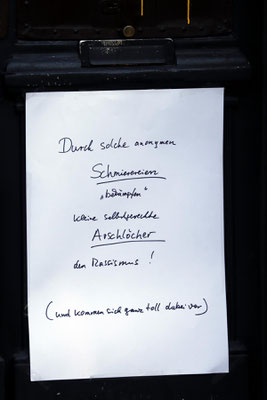 Durch solche anonymen
Schmierereien
„bekämpfen“
kleine selbstgerechte
Arschlöcher
den Rassismus !
(und kommen sich ganz toll dabei vor)